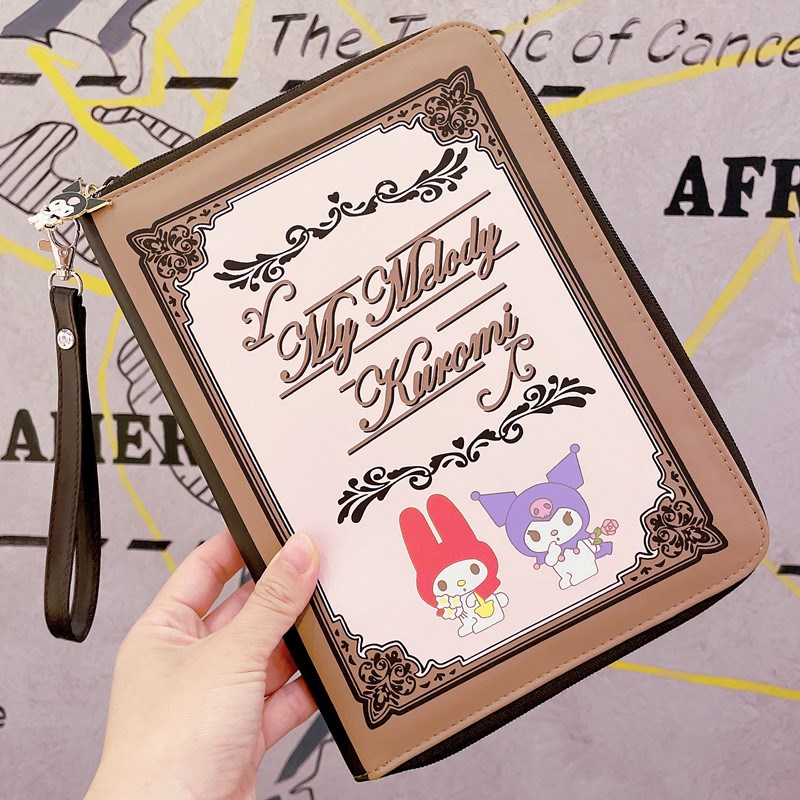 The Tropic of Cance
AFR
AMER
My Melody
Kuromi
e